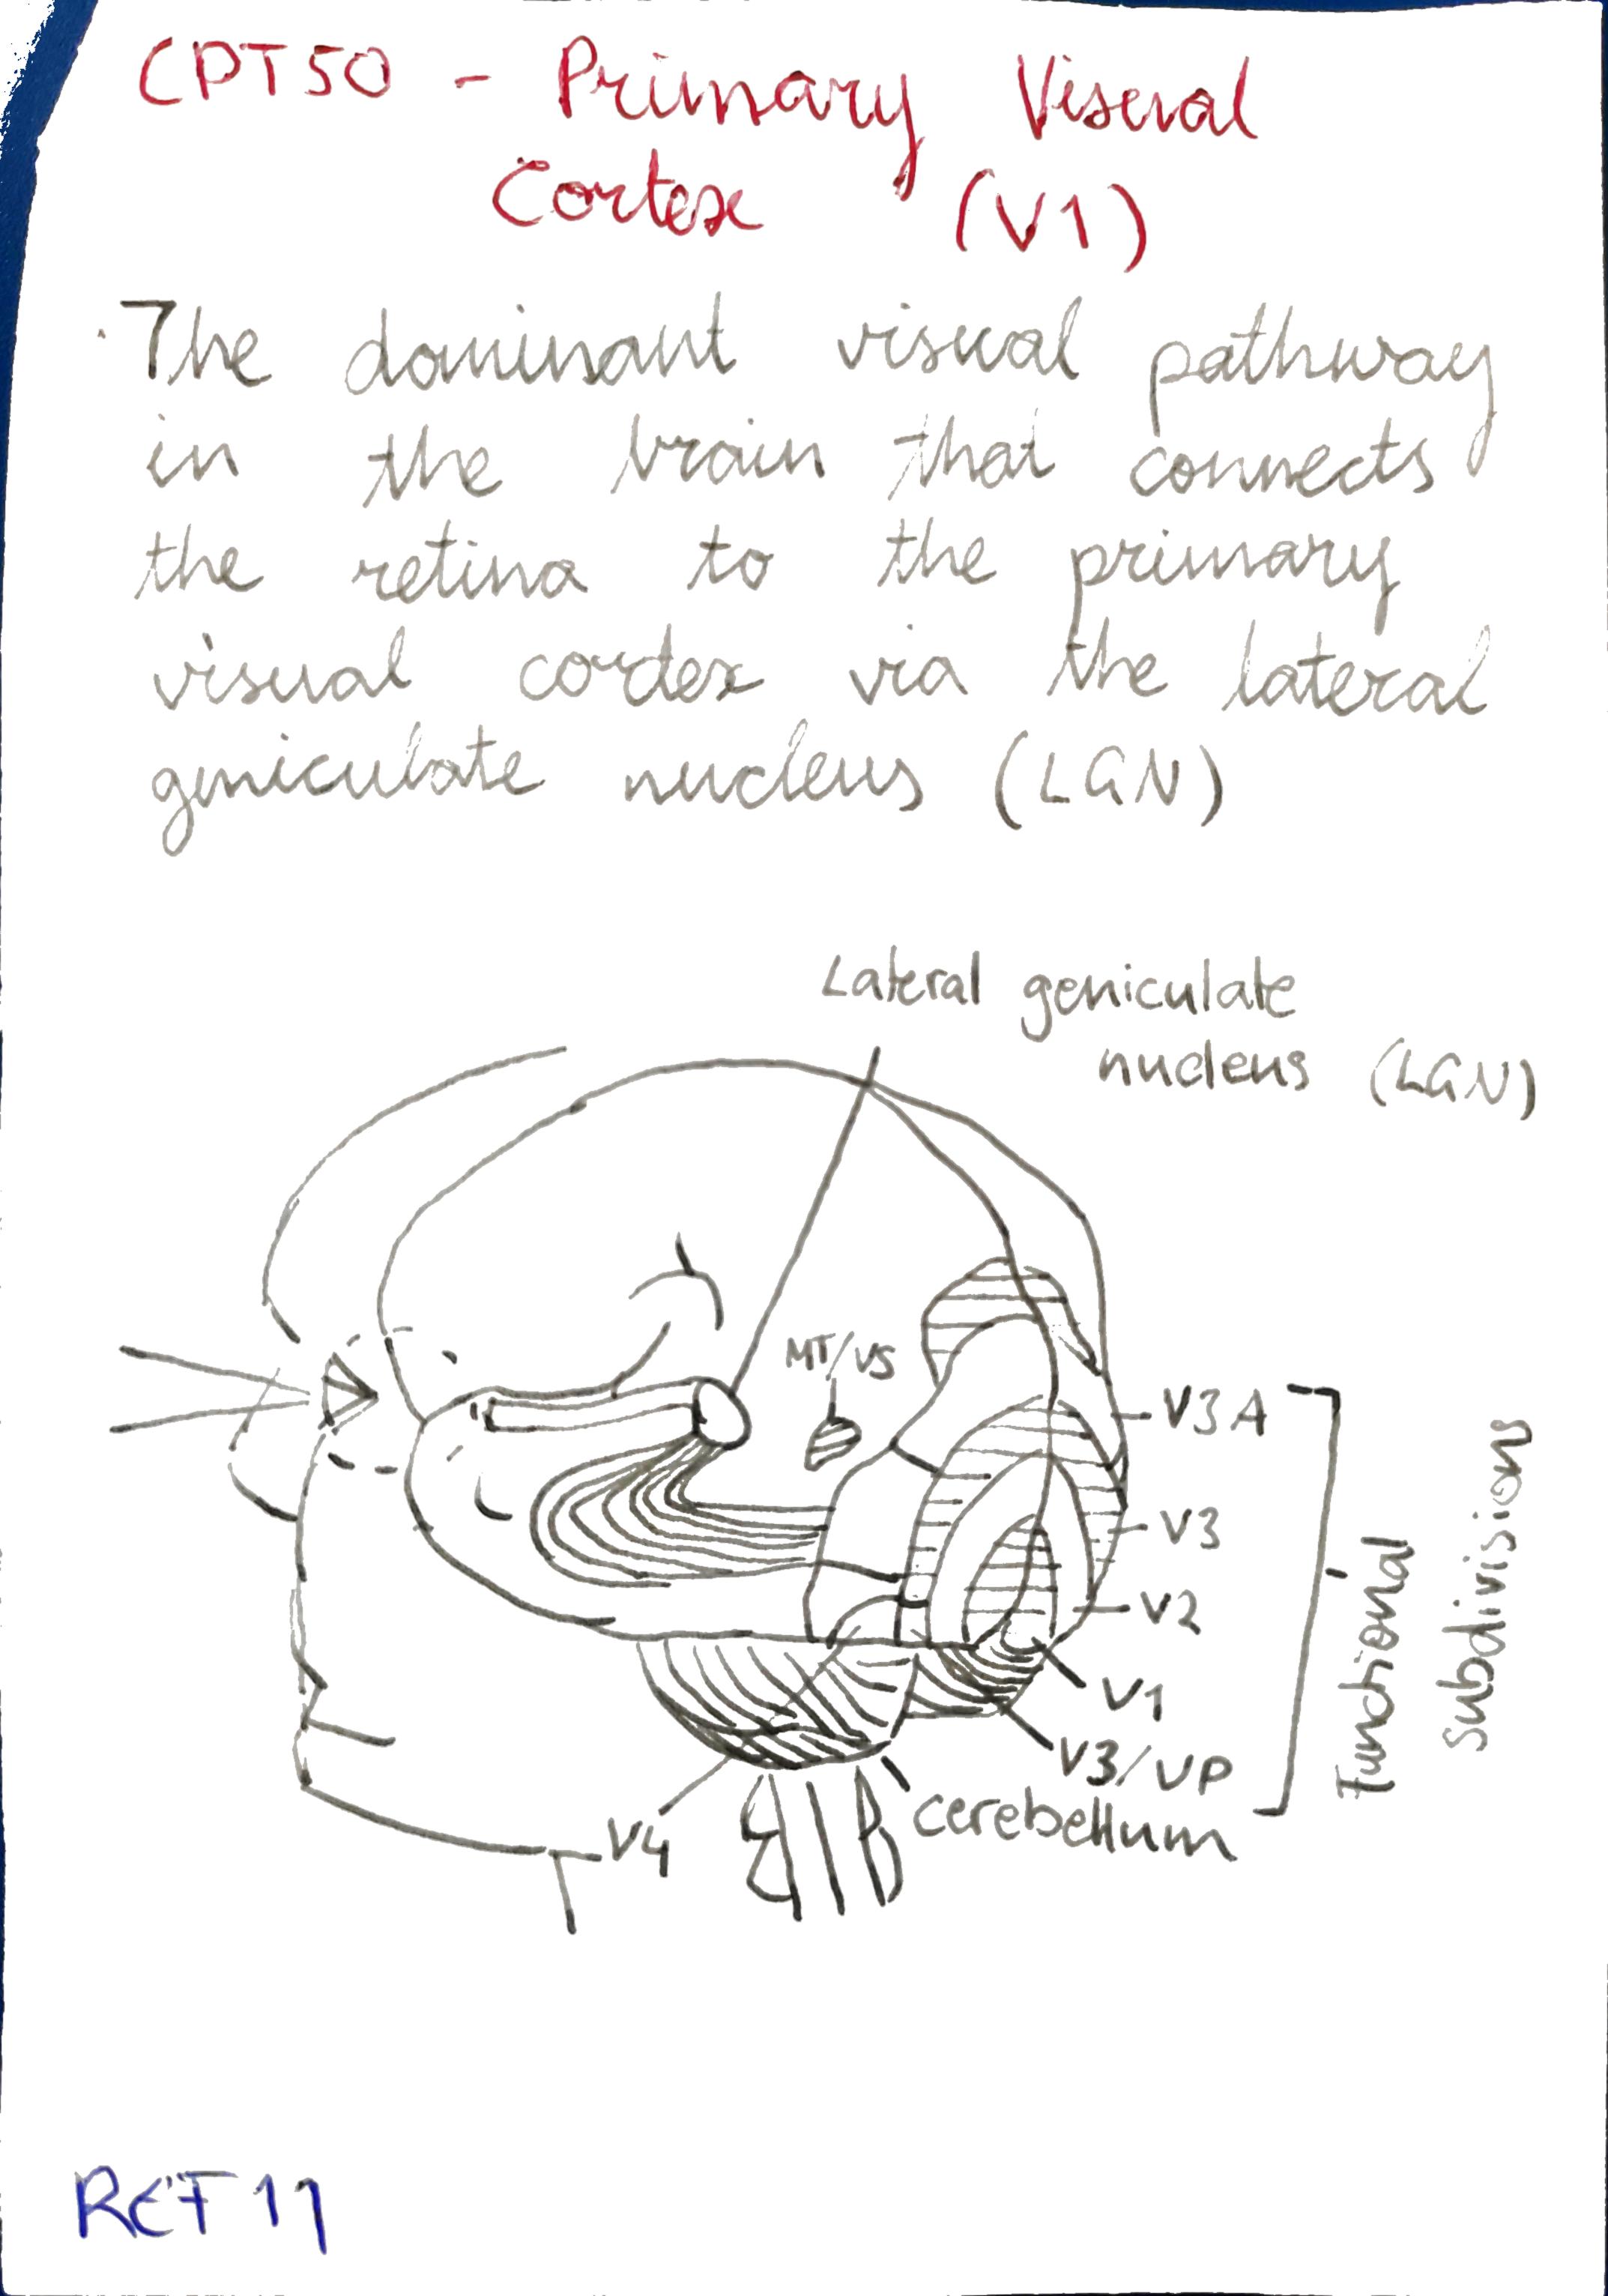 CPT50 - Primary Visual
Cortex (V1)
The dominant visual pathway
in the brain that connects
the retina to the primary
visual cortex via the lateral
geniculate nucleus (LGN)
Lateral geniculate
nucleus (LGN)
MT/V5
V3A
V3
V2
V1
V3/VP
cerebellum
V4
Functional
subdivisions
REF11